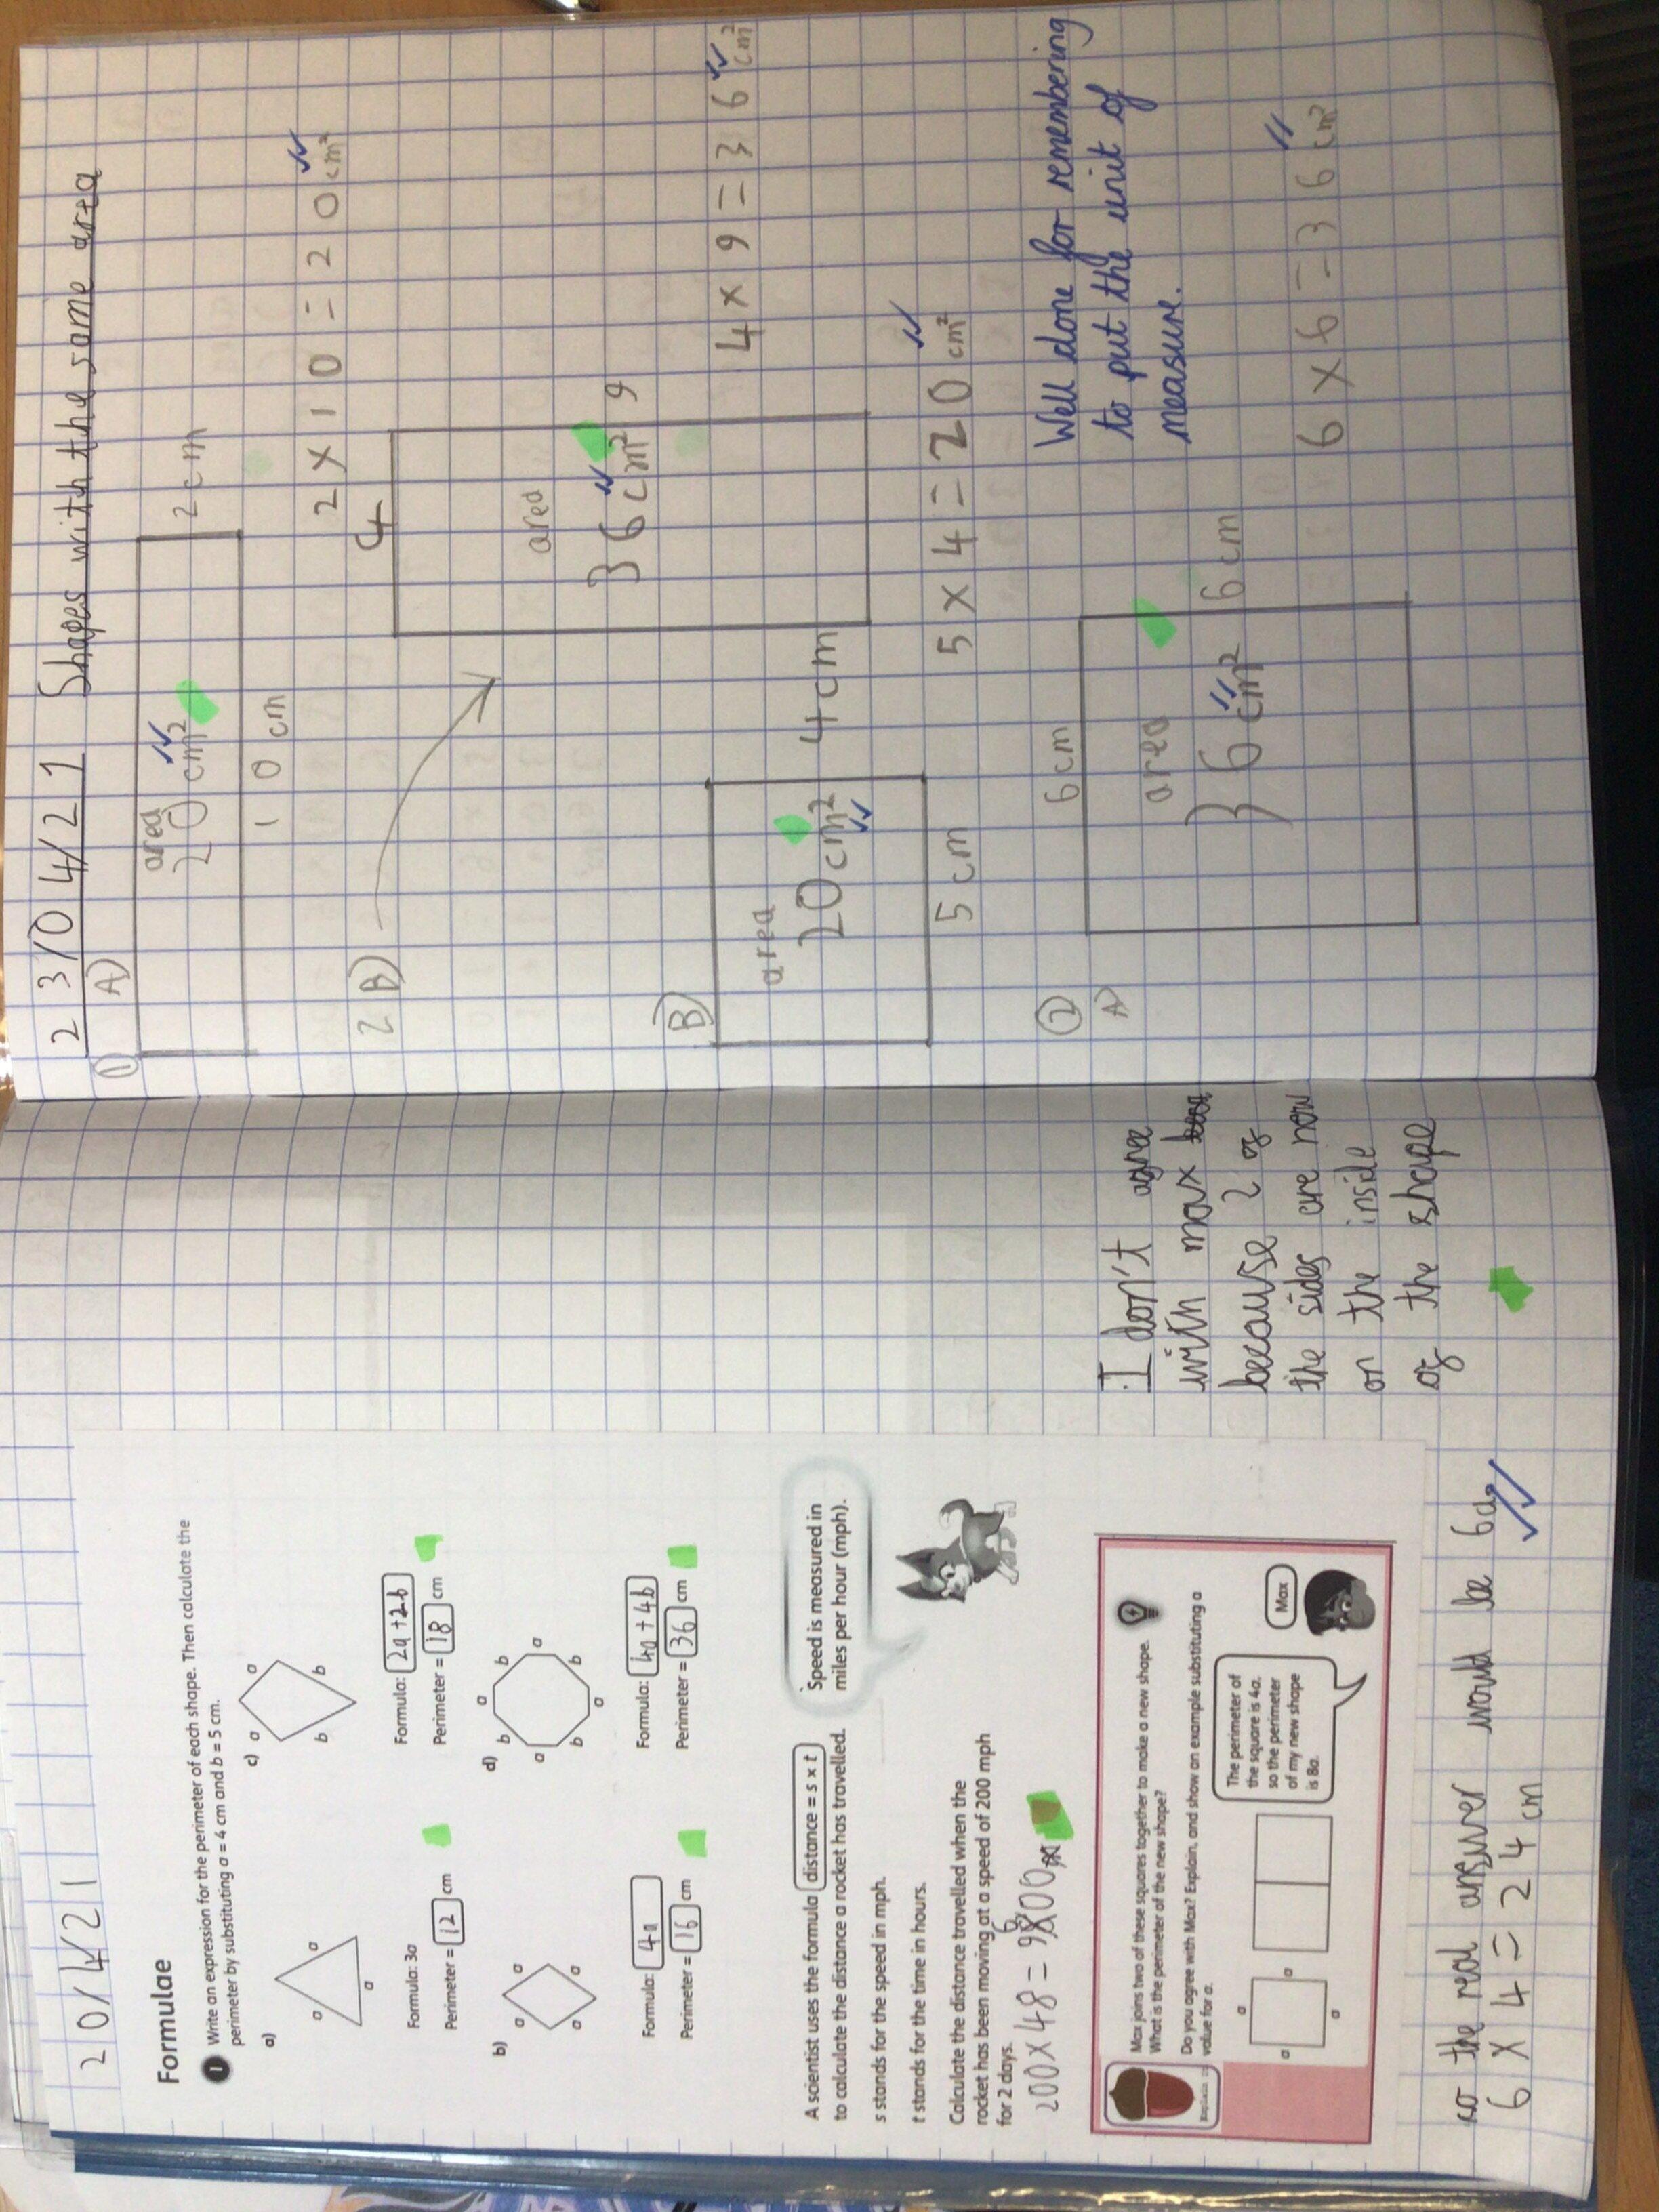 20/4/21
Formulae
1 Write an expression for the perimeter of each shape. Then calculate the
perimeter by substituting a = 4 cm and b = 5 cm.
a)
a
a
a
Formula: 3a
Perimeter = 12 cm
c)
a
a
b
b
Formula: 2a+2b
Perimeter = 18 cm
b)
a
a
a
a
Formula: 4a
Perimeter = 16 cm
d)
a
b
a
b
a
b
a
b
Formula: 4a+4b
Perimeter = 36 cm
A scientist uses the formula distance = s x t
to calculate the distance a rocket has travelled.
s stands for the speed in mph.
t stands for the time in hours.
Speed is measured in
miles per hour (mph).
Calculate the distance travelled when the
rocket has been moving at a speed of 200 mph
for 2 days.
200x48=9600m
Max joins two of these squares together to make a new shape.
What is the perimeter of the new shape?
Do you agree with Max? Explain, and show an example substituting a
value for a.
a
a
a
a
The perimeter of
the square is 4a,
so the perimeter
of my new shape
is 8a.
Max
so the real answer would be 6a.
6x4=24cm
I don't agree
with max
because 2 of
the sides are now
on the inside
of the shape
23/04/21 Shapes with the same area
1) A)
area
20cm²
2cm
10cm
2x10=20cm²
2B)
4
area
36cm²
9
4x9=36cm²
B)
area
20cm²
4cm
5cm
5x4=20cm²
Well done for remembering
to put the unit of
measure.
2
A)
6cm
area
36cm²
6cm
6x6=36cm²